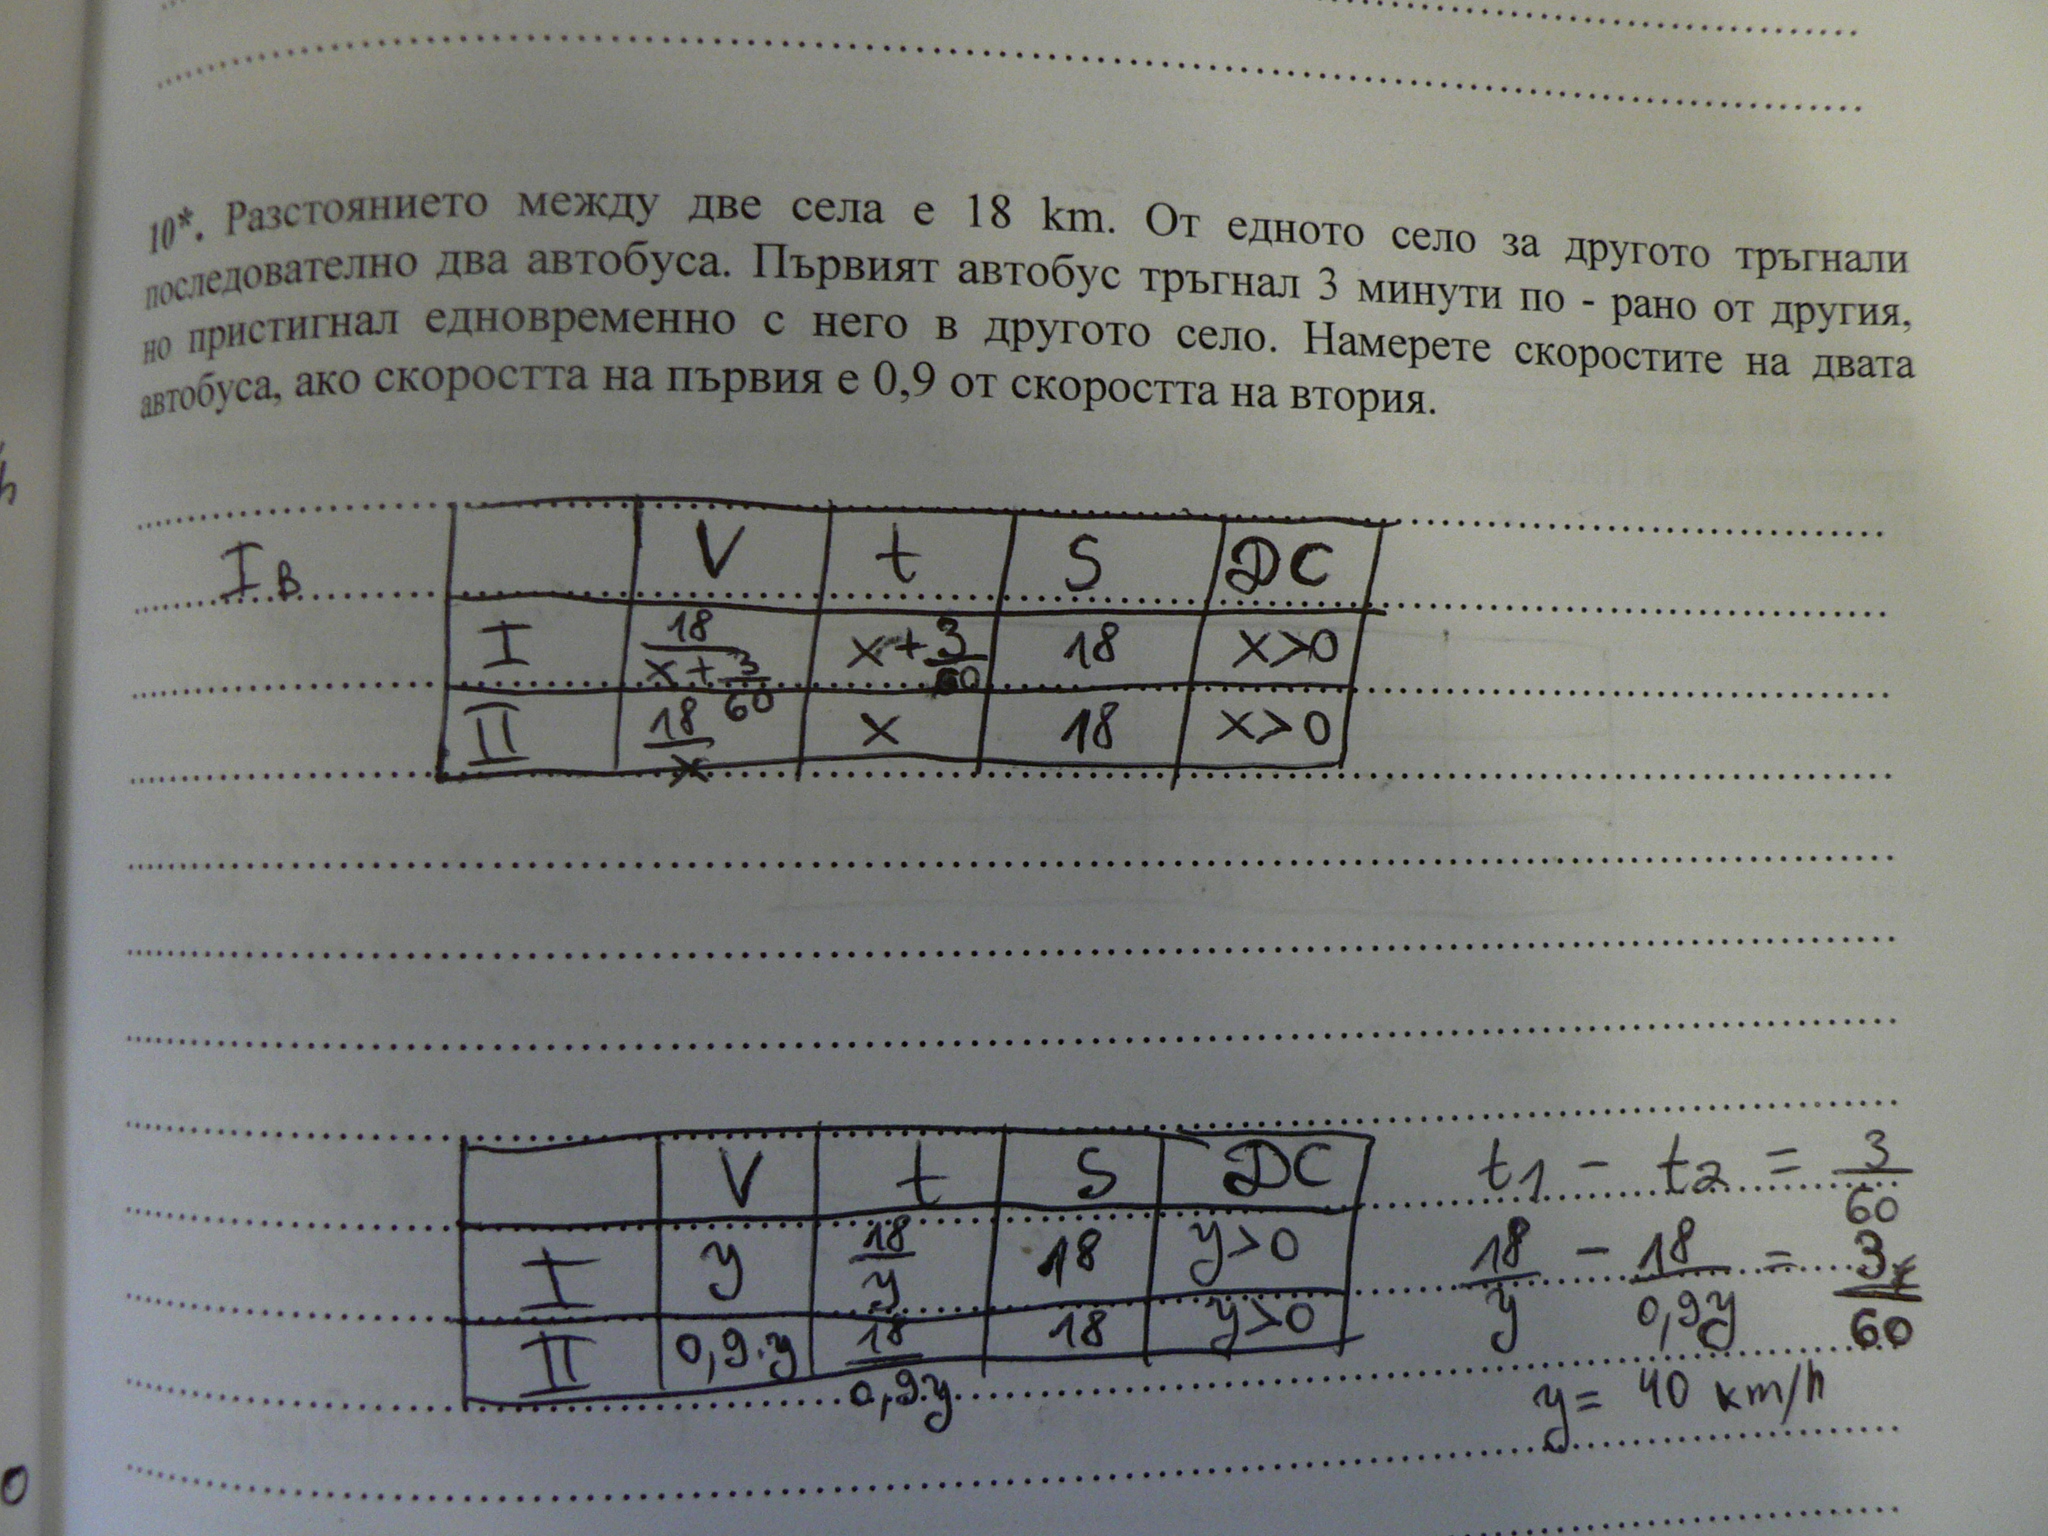 10*. Разстоянието между две села е 18 km. От едното село за другото тръгнали
последователно два автобуса. Първият автобус тръгнал 3 минути по - рано от другия,
но пристигнал едновременно с него в другото село. Намерете скоростите на двата
автобуса, ако скоростта на първия е 0,9 от скоростта на втория.
I в
V t S DC
I 18/(x+3/60) x+3/60 18 x>0
II 18/x x 18 x>0
V t S DC
I y 18/y 18 y>0
II 0,9.y 18/0,9.y 18 y>0
t1 - t2 = 3/60
18/y - 18/0,9y = 3/60
y= 40 km/h